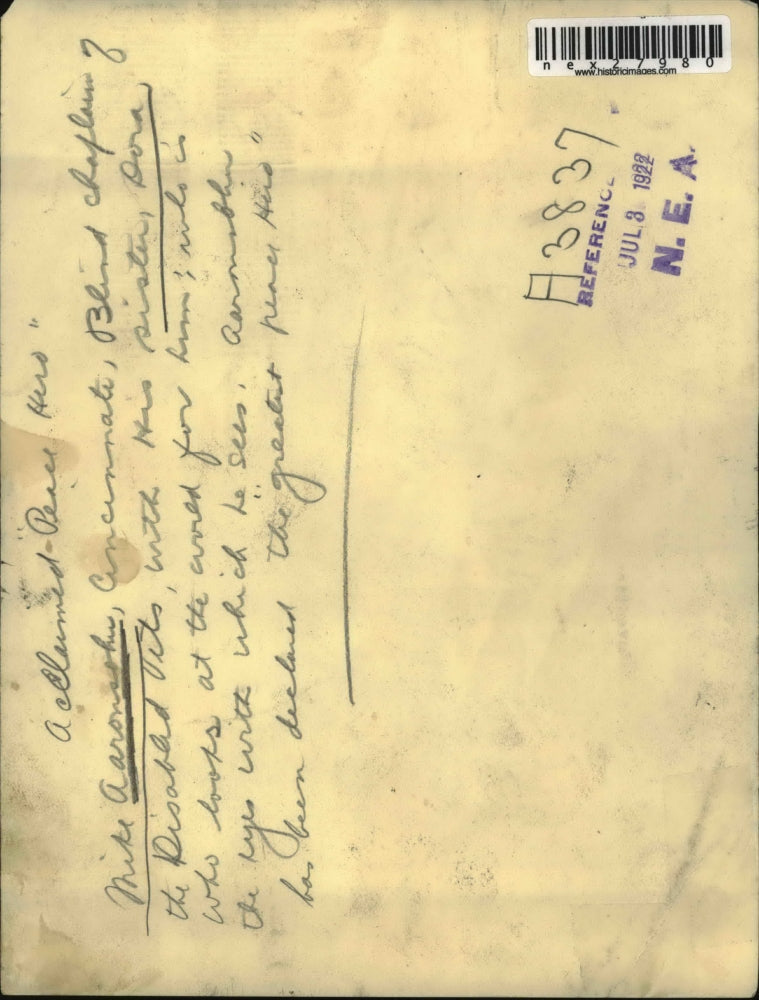 Acclaimed "Peace Hero"
Mike Aaronsohn, Cincinnati, Blind chaplain of
the Disabled Vets, with His sister, Dora,
who looks at the world for him; who is
the eyes with which he sees. Aaronsohn
has been declared "the greatest peace Hero"
nex27980
www.historicimages.com
A3837
REFERENCE
JUL 3 1922
N. E. A.